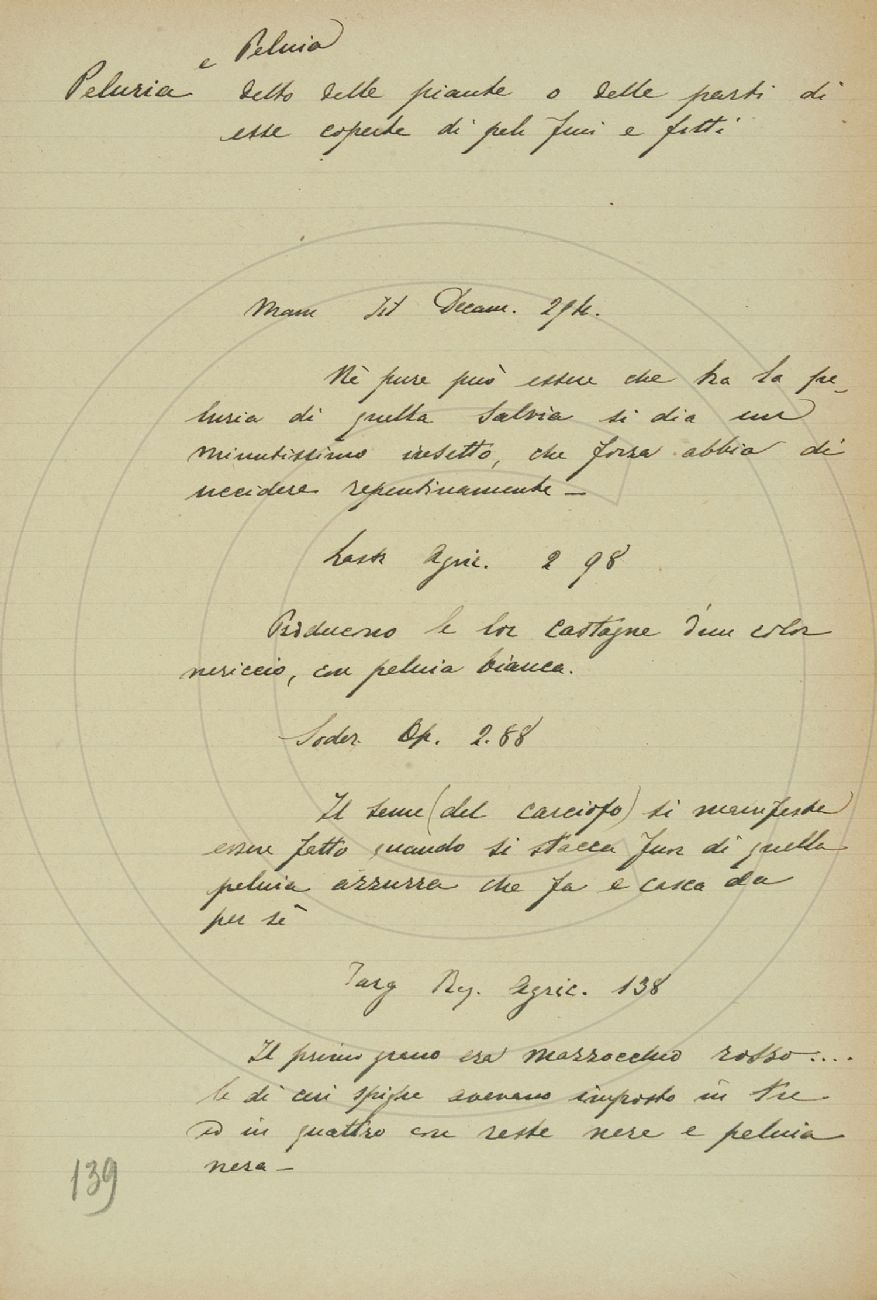 e Peluia
Peluria detto delle piante o delle parti di
esse coperte di peli fini e fitti
Mann Ist Decam. 294.
Nè pure può essere che tra la pe-
luria di quella Salvia si dia un
minutissimo insetto, che forza abbia di
uccidere repentinamente –
Lastr Agric. 2 98
Producono le lor castagne d'un color
nericcio, con peluia bianca.
Soder. Op. 2.88
Il seme (del carciofo) si manifesta
essere fatto quando si stacca fuor di quella
peluia azzurra che fa e casca da
per sè
Targ Rag. Agric. 138
Il primo grano era mazzocchio rosso....
le di cui spighe avevano imposto in tre
ed in quattro con reste nere e peluia
nera –
139